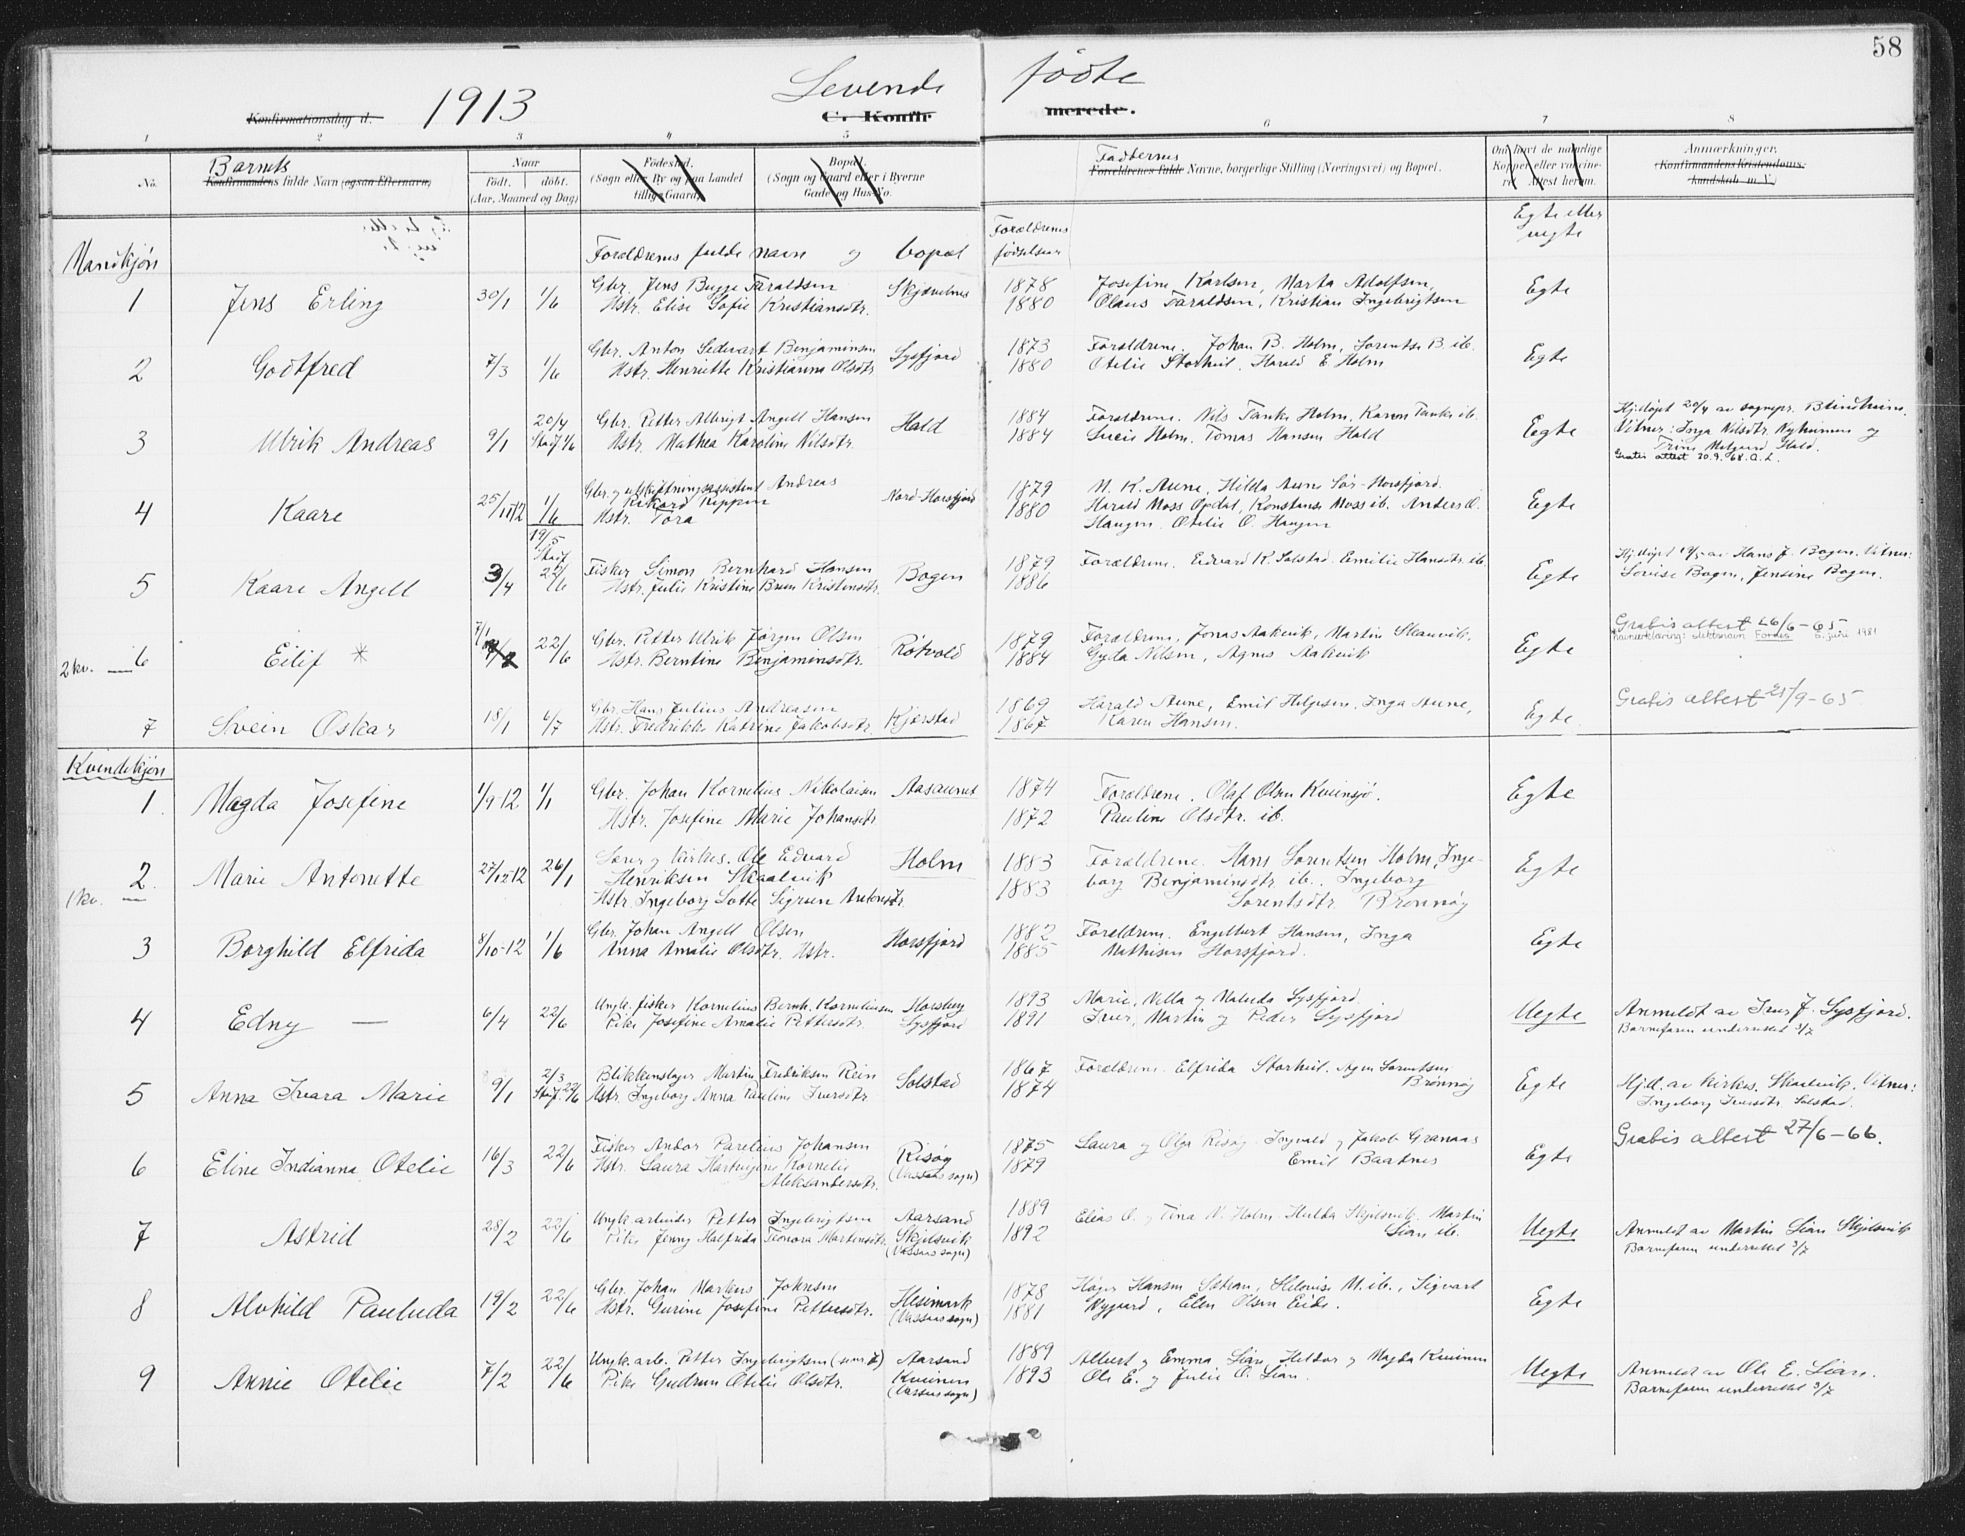 58
1913 Levende fødte
Konfirmationsdag d.
C. Konfirmerede.
1 2 3 4 5 6 7 8
No. Barnets Konfirmandens fulde Navn (ogsaa Efternavn)
Naar Født. døbt. (Aar, Maaned og Dag)
Fødested. (Sogn eller By og paa Landet tillige Gaard)
Bopæl. (Sogn og Gaard eller i Byerne Gade og Hus-No.
Faddernes Forældrenes fulde Navne, borgerlige Stilling (Næringsvei) og Bopæl.
Om havt de naturlige Kopper eller vaccineret. Attest herom.
Anmærkninger. (Konfirmandens Kristendomskundskab m. V.)
Forældrenes fulde navn og bopæl
Forældrenes fødselsaar
Egte eller uegte
Mandkjøn
1 Jens Erling 30/1 1/6 Gbr. Jens Bugge Faraldsen Skjævelnes 1878 Josefine Karlsen, Marta Adolfsen,
Hstr. Elise Sofie Kristiansdtr. 1880 Olaus Faraldsen, Kristian Ingebrigtsen Egte
2 Godtfred 7/3 1/6 Gbr. Anton Sedevart Benjaminsen Lysfjord 1873 Forældrene. Johan B. Holm, Sorentse B. ib.
Hstr. Henriette Kristianna Olsdtr 1880 Otelie Storhul. Harald E Holm Egte
3 Ulrik Andreas 9/1 20/4 Stadf. 1/6 Gbr. Petter Albrigt Angell Hansen Hald 1884 Forældrene. Nils Tanke Holm, Karen Tanke ib.
Hstr. Mathea Karoline Nilsdtr. 1884 Lucie Holm. Tomas Hansen Hald Egte
Hj.døpt 20/4 av sognepr. Blindheim.
Vitner: Inga Nilsdtr. Nyheimen og
Trine Melgaard Hald.
Gratis attest 20.9.68.
4 Kaare 25/11 12 1/6 Gbr. og utskiftningsassistent Andreas Nord-Horsfjord 1879 M. K. Aune, Hilda Aune Sør-Horsfjord.
Rikard Reppen
Hstr. Tora 1880 Harald Moss Opdal, Konstanse Moss ib. Anders O.
Haugen. Otelie O. Haugen Egte
5 Kaare Angell 3/4 19/5 Stadf 22/6 Fisker Simon Bernhard Hansen Bogen 1879 Forældrene. Edvard K. Solstad. Emilie Hansdtr. ib.
Hstr. Julie Kristine Brun Kristensdtr. 1886 Egte
Hj.døpt 19/5 av Hans J. Bogen. Vitner:
Lovise Bogen, Jensine Bogen.
2 kv. — 6 Eilif * 7/1 22/6 Gbr. Petter Ulrik Jørgen Olsen Røtvold 1879 Forældrene, Jonas Aakvik, Martin Skauvik,
Hstr. Berntine Benjaminsdtr. 1884 Gyda Nilsen, Agnes Aakvik Egte
Gratis attest 26/6-65
Navneerklæring: slektsnavn Fornes 6. juni 1981
7 Svein Oskar 18/1 6/7 Gbr. Hans Julius Andreasen Kjærstad 1869 Harald Aune, Emil Helgesen, Inga Aune,
Hstr. Fredrikke Katrine Jakobsdtr. 1867 Karen Hansen. Egte.
Gratis attest 21/9-65
Kvindekjøn
1 Magda Josefine 1/9-12 1/1 Gbr. Johan Kornelius Nikolaisen Aasaunet 1874 Forældrene. Olaf Olsen Kveinsjø.
Hstr. Josefine Marie Johansdtr. 1872 Pauline Olsdtr. ib. Egte
1 kv. — 2. Marie Antonette 27/12-12 26/1 Lærer og kirkes. Ole Edvard Holm 1883 Forældrene. Hans Sørentsen Holm, Inge-
Henriksen Skaalvik
Hstr. Ingeborg Lotte Sigrun Antonsdtr. 1883 borg Benjaminsdtr. ib., Ingeborg
Sørentsdtr Brønnøy Egte
3 Borghild Elfrida 8/10-12 1/6 Gbr. Johan Angell Olsen Horsfjord 1882 Forældrene. Engelbert Hansen, Inga
Anna Amalie Olsdtr. Hstr. 1885 Mathisen Horsfjord. Egte
4 Edny — 6/4 22/6 Ungk. fisker Kornelius Bernh. Korneliussen Horsberg 1893 Marie, Villa og Maluda Lysfjord.
Pike Josefine Amalie Pettersdtr. Lysfjord 1891 Iver, Martin og Peder Lysfjord Uegte
Anmeldt av Iver J. Lysfjord.
Barnefaren underrettet 3/7
5 Anna Ivara Marie 9/1 2/3 Stadf. 22/6 Blikkenslager Martin Fredriksen Rein Solstad 1867 Forældrene. Elfrida Storhul. Agn Sørentsen
Hstr. Ingeborg Anna Pauline Iversdtr 1874 Brønnøy Egte
Hjd. av kirkes. Skaalvik. Vitner:
Ingeborg Iversdtr. Solstad.
6 Eline Indianna Otelie 16/3 22/6 Fisker Andor Parelius Johansen Risøy 1875 Laura og Olga Risøy. Ingvald og Jakob Granaas
Hstr. Laura Hartvigine Kornelie (Vassaas sogn) 1879 Emil Baatnes Egte
Aleksandersdtr.
Gratis attest 27/6-66.
7 Astrid 28/2 22/6 Ungk. arbeider Petter Ingebrigtsen Aarsand 1889 Elias O. og Tina N. Holm. Hulda Skjelsvik. Martin
Pike Jenny Halfrida Leonora Martinsdtr. Skjelsvik (Vassaas sogn) 1892 Lian ib. Uegte
Anmeldt av Martin Lian Skjelsvik
Barnefaren underrettet 3/7
8 Alvhild Pauluda 19/2 22/6 Gbr. Johan Markus Johnsen Heiemark 1878 Høger Hansen Sætran, Helovise M. ib., Sigvart
Hstr. Gurine Josefine Pettersdtr. (Vassaas sogn) 1881 Nygaard, Elen Olsen Eide. Egte
9 Annie Otelie 7/2 22/6 Ungk. arb. Petter Ingebrigtsen (som 7) Aarsand 1889 Albert og Emma Lian, Heldor og Magda Kveinen
Pike Gudrun Otelie Olsdtr. Kveinen (Vassaas sogn) 1893 Ole E. og Julie O. Lian. Uegte
Anmeldt av Ole E. Lian.
Barnefaren underrettet 3/7